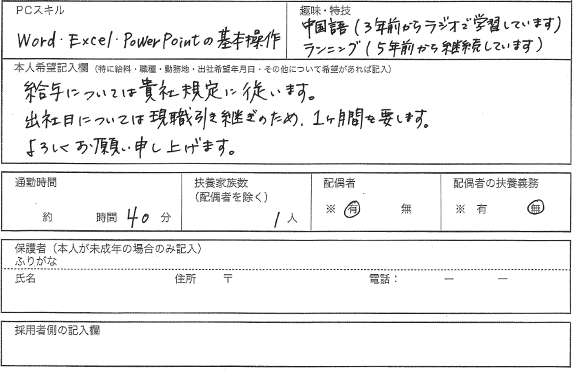 PCスキル
Word・Excel・PowerPointの基本操作
趣味・特技
中国語(3年前からラジオで学習しています)
ランニング(5年前から継続しています)
本人希望記入欄(特に給料・職種・勤務地・出社希望年月日・その他について希望があれば記入)
給与については貴社規定に従います。
出社日については現職引き継ぎのため、1ヶ月間を要します。
よろしくお願い申し上げます。
通勤時間
約 時間 40 分
扶養家族数
(配偶者を除く)
1人
配偶者
※ 有 無
配偶者の扶養義務
※ 有 無
保護者(本人が未成年の場合のみ記入)
ふりがな
氏名 住所 〒 電話: ー ー
採用者側の記入欄